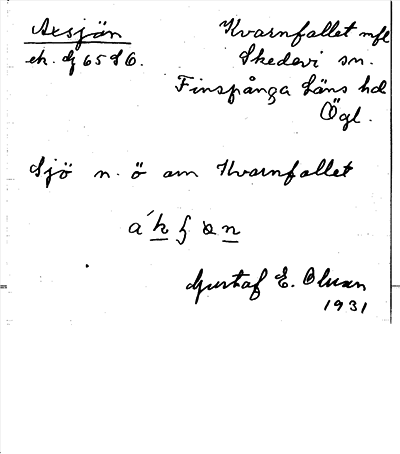 Axsjön
ek. bl 65 S 6.
Kvarnfallet mfl
Skedevi sn.
Finspånga läns hd
Ögl.
Sjö n. ö om Kvarnfallet
Gustaf E. Olsson
1931